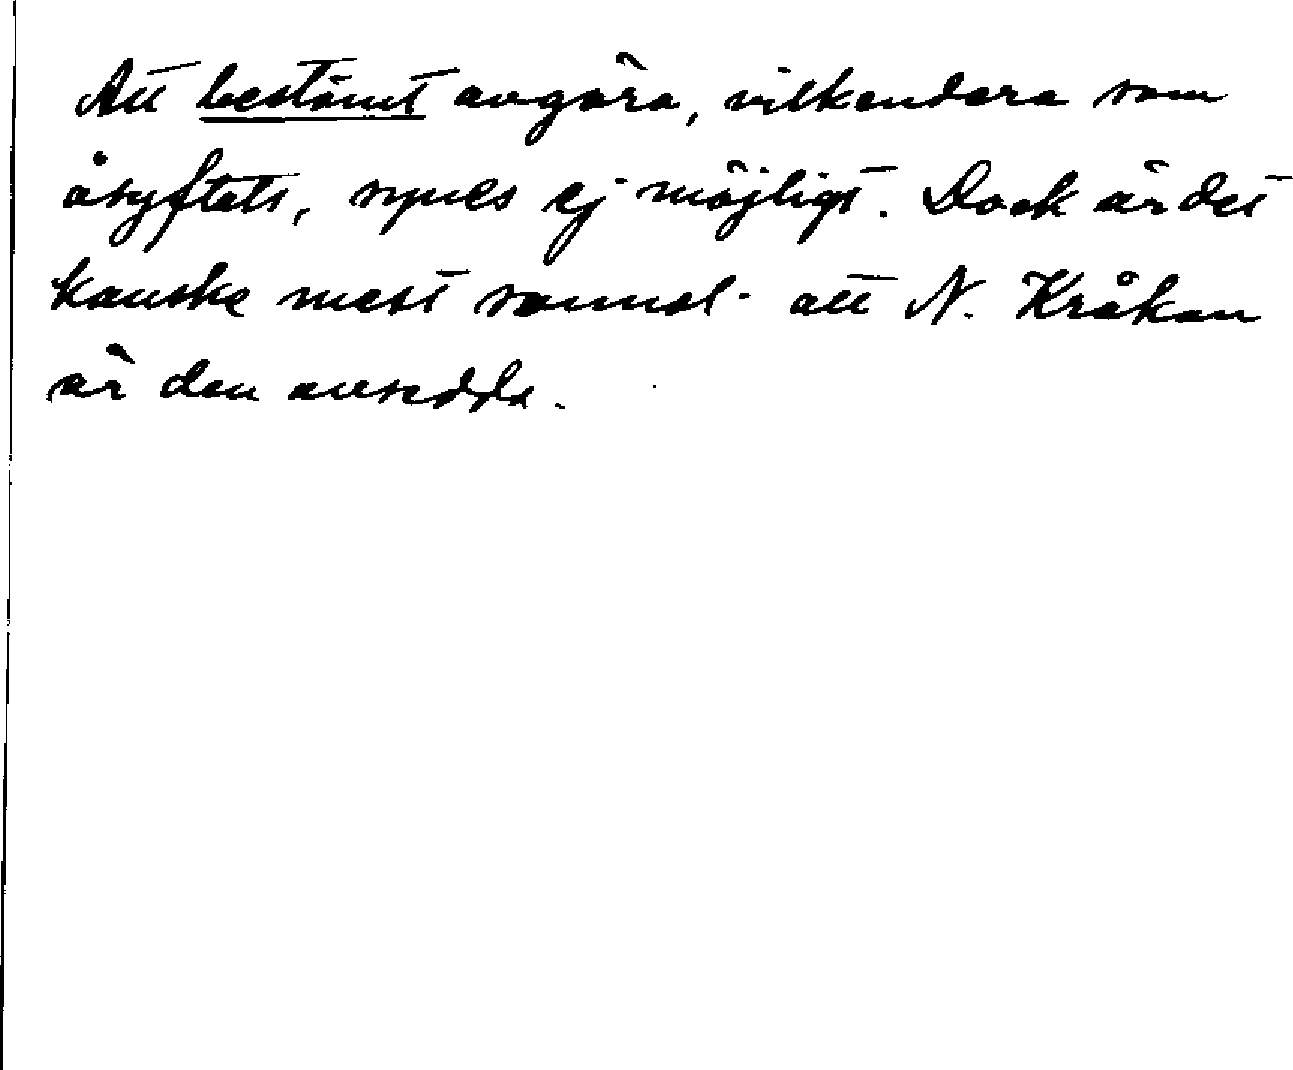 Att bestämt avgöra, vilkendera som
åsyftats, synes ej möjligt. Dock är det
kanske mest sannol. att N. Kråkan
är den avsedda.